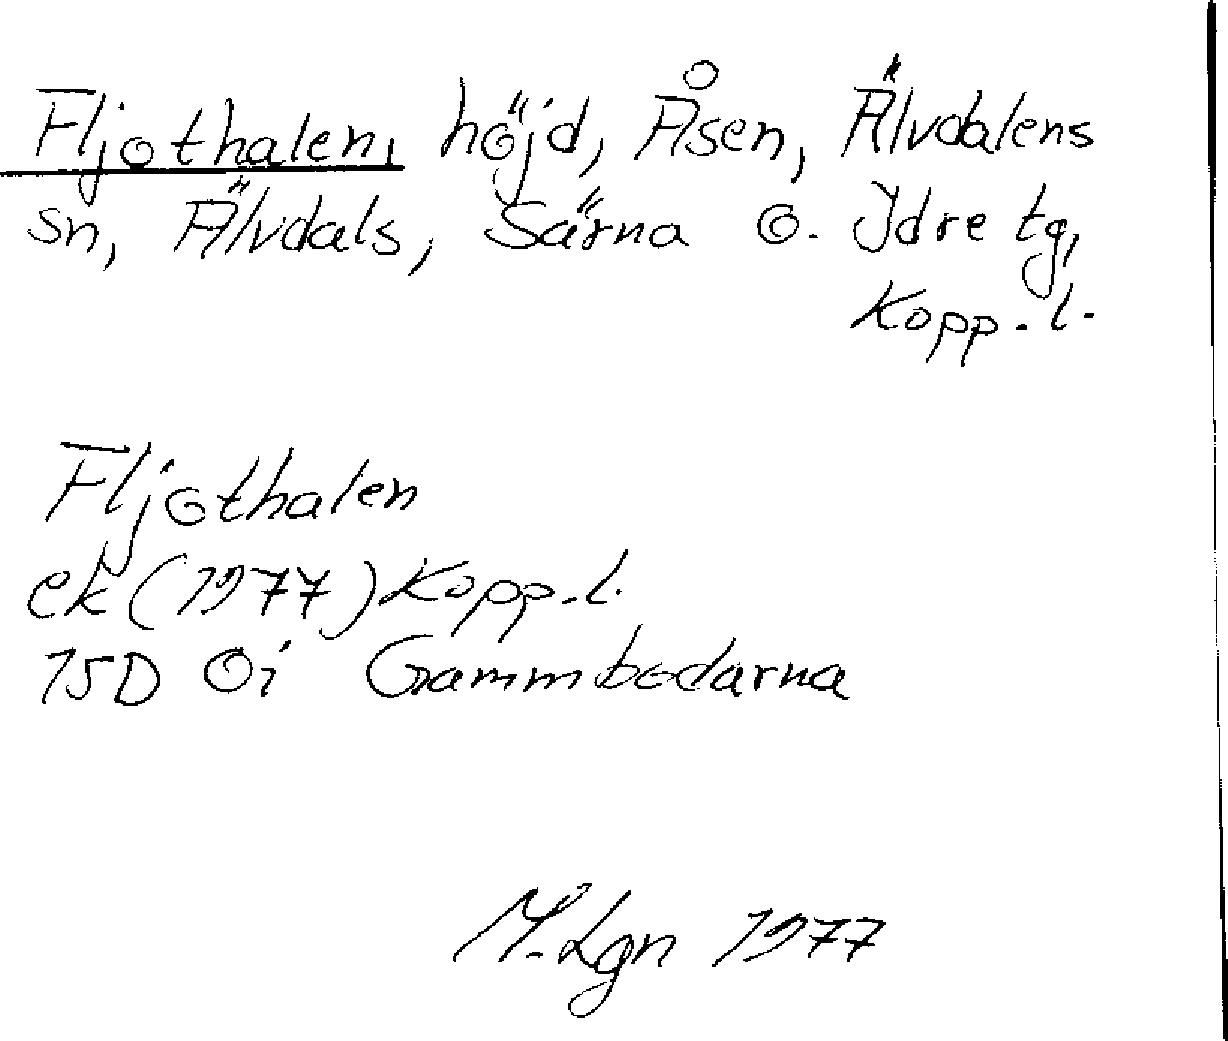 Fljothalen, höjd, Åsen, Älvdalens
sn, Älvdals, Särna o. Idre tg,
Kopp. l.
Fljothalen
ek (1977) Kopp. l.
15D 0i Gammbodarna
M. Lgn 1977